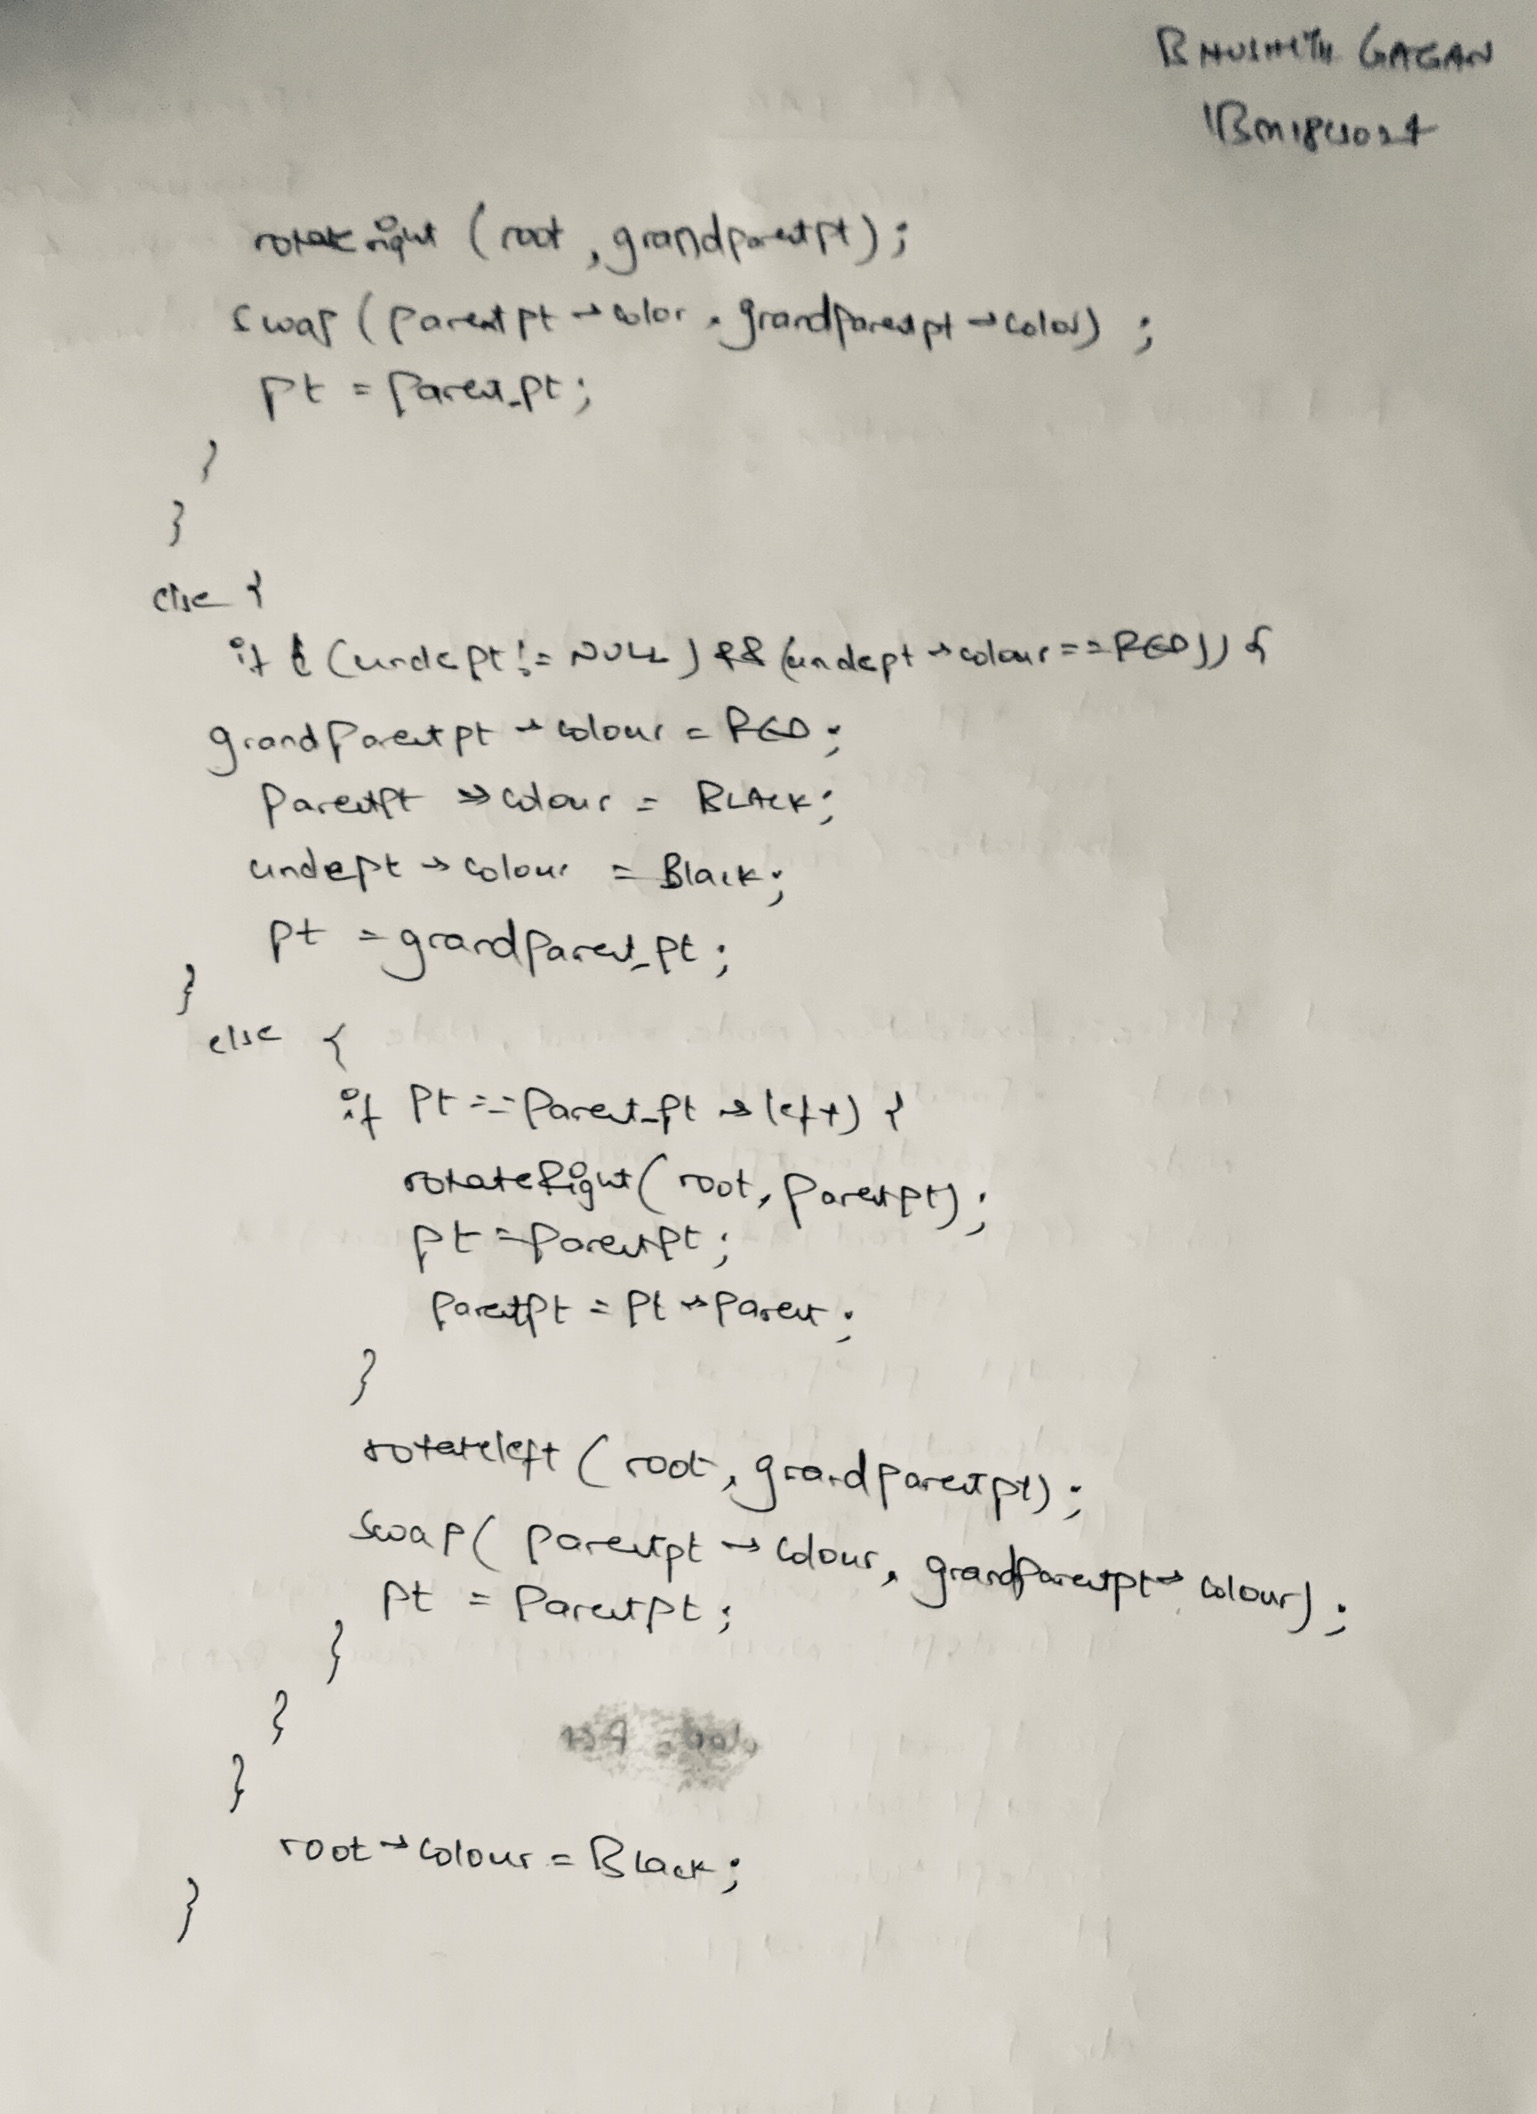 BHUSHITH GAGAN
1BM18CS024
rotateright (root, grandparentpt);
swap (parentpt → color, grandparentpt → color) ;
pt = parent_pt;
}
}
else {
if ( (unclept != NULL) && (unclept → colour == RED)) {
grandparentpt → colour = RED;
parentpt → colour = BLACK;
unclept → colour = Black;
pt = grandparent_pt;
}
else {
if pt == parent_pt → left) {
rotateRight( root, parentpt);
pt = parentpt;
parentpt = pt → parent;
}
rotateleft ( root, grandparentpt);
swap( parentpt → colour, grandparentpt → colour) ;
pt = parentpt;
}
}
}
root → colour = Black;
}